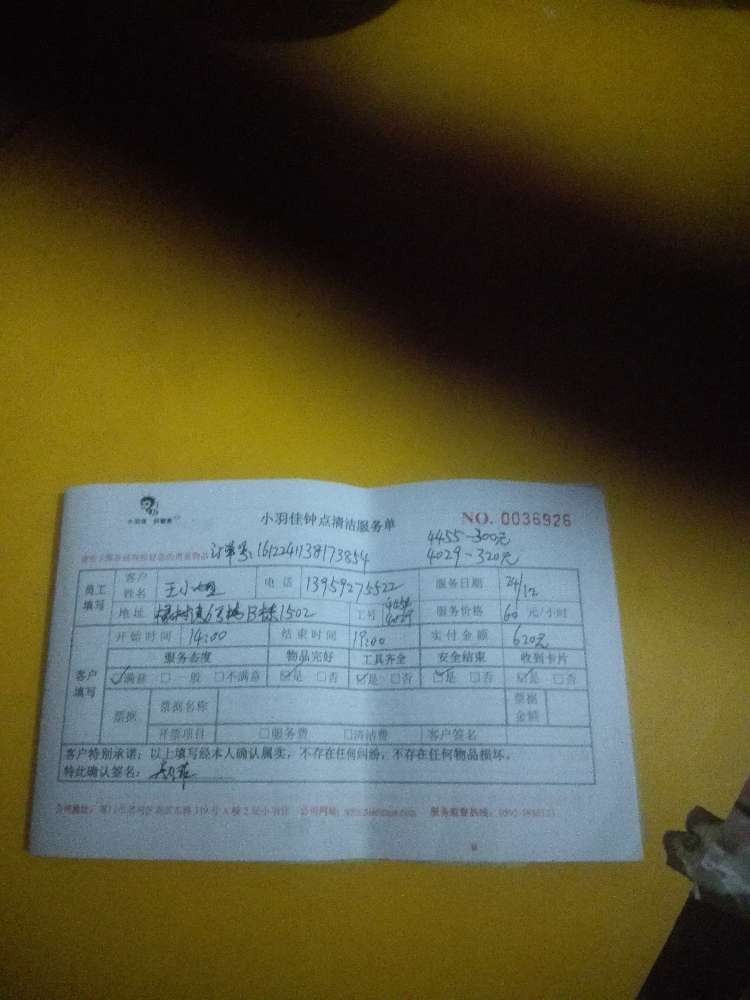 小羽佳钟点清洁服务单
NO. 0036926
订单号: 161224113817 3854
4455-300元
4029-320元
员工填写 客户姓名 王小姐 电话 13959275522 服务日期 24/12
地址 B栋1502 工号 4455 4029 服务价格 60 元/小时
开始时间 14:00 结束时间 19:00 实付金额 620元
客户填写 服务态度 物品完好 工具齐全 安全结束 收到卡片
☑满意 □一般 □不满意 ☑是 □否 ☑是 □否 ☑是 □否 ☑是 □否
票据 票据名称 票据金额
开票项目 □服务费 □清洁费 客户签名
客户特别承诺：以上填写经本人确认属实，不存在任何纠纷，不存在任何物品损坏。
特此确认签名：
公司地址： 119号A楼2层小羽佳 公司网址： 服务监督热线：